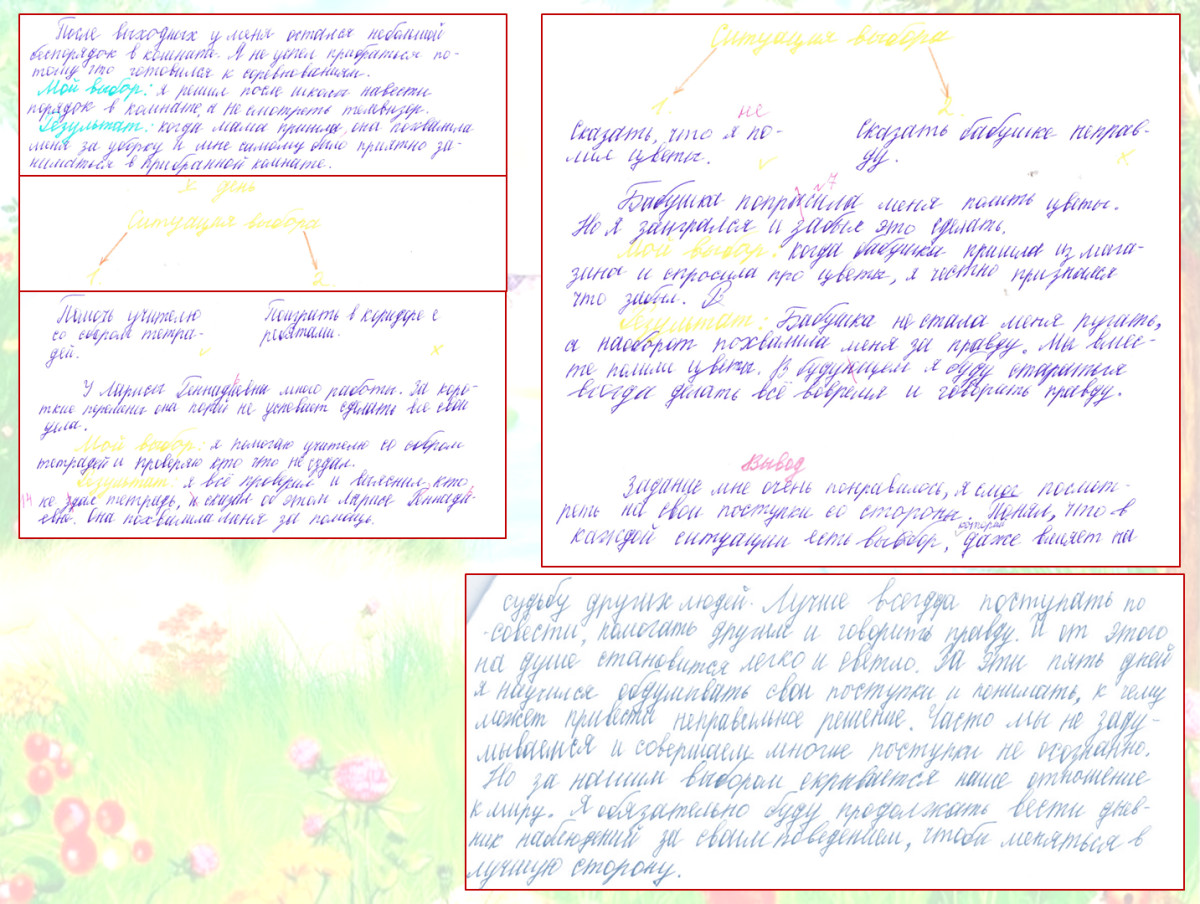 После выходных у меня остался небольшой
беспорядок в комнате. Я не успел прибраться по-
тому что готовился к соревнованиям.
Мой выбор: я решил после школы навести
порядок в комнате, а не смотреть телевизор.
Результат: когда мама пришла, она похвалила
меня за уборку и мне самому было приятно за-
ниматься в прибранной комнате.
X день
Ситуация выбора
1. 2.
Помочь учителю
со сбором тетра-
дей.
Поиграть в коридоре с
ребятами.
У Ларисы Геннадьевны много работы. За коро-
ткие перемены она порой не успевает сделать все свои
дела.
Мой выбор: я помогаю учителю со сбором
тетрадей и проверяю кто что не сдал.
Результат: я всё проверил и выяснил, кто
не сдал тетрадь, и сказал об этом Ларисе Геннадь-
евне. Она похвалила меня за помощь.
Ситуация выбора
1. 2.
не
Сказать, что я по-
лил цветы.
Сказать бабушке неправ-
ду.
Бабушка попросила меня полить цветы.
Но я заигрался и забыл это сделать.
Мой выбор: когда бабушка пришла из мага-
зина и спросила про цветы, я честно признался
что забыл.
Результат: Бабушка не стала меня ругать,
а наоборот похвалила меня за правду. Мы вмес-
те полили цветы. В будующем я буду стараться
всегда делать всё вовремя и говорить правду.
Вывод
Задание мне очень понравилось, я смог посмот-
реть на свои поступки со стороны. Понял, что в
который
каждой ситуации есть выбор, даже влияет на
судьбу других людей. Лучше всегда поступать по
-совести, помогать другим и говорить правду. И от этого
на душе становится легко и светло. За эти пять дней
я научился обдумывать свои поступки и понимать, к чему
может привести неправильное решение. Часто мы не заду-
мываемся и совершаем многие поступки не осознанно.
Но за нашим выбором скрывается наше отношение
к миру. Я обязательно буду продолжать вести днев-
ник наблюдений за своим поведением, чтобы меняться в
лучшую сторону.